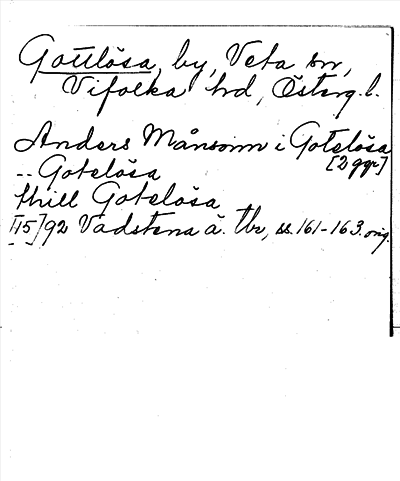 Gottlösa, by, Veta sn,
Vifolka hd, Österg. l.
Anders Månsonn i Gotelösa
[2 ggr]
-- Gotelösa
thill Gotelösa
[15]92 Vadstena ä. tbr, ss. 161-163. orig.